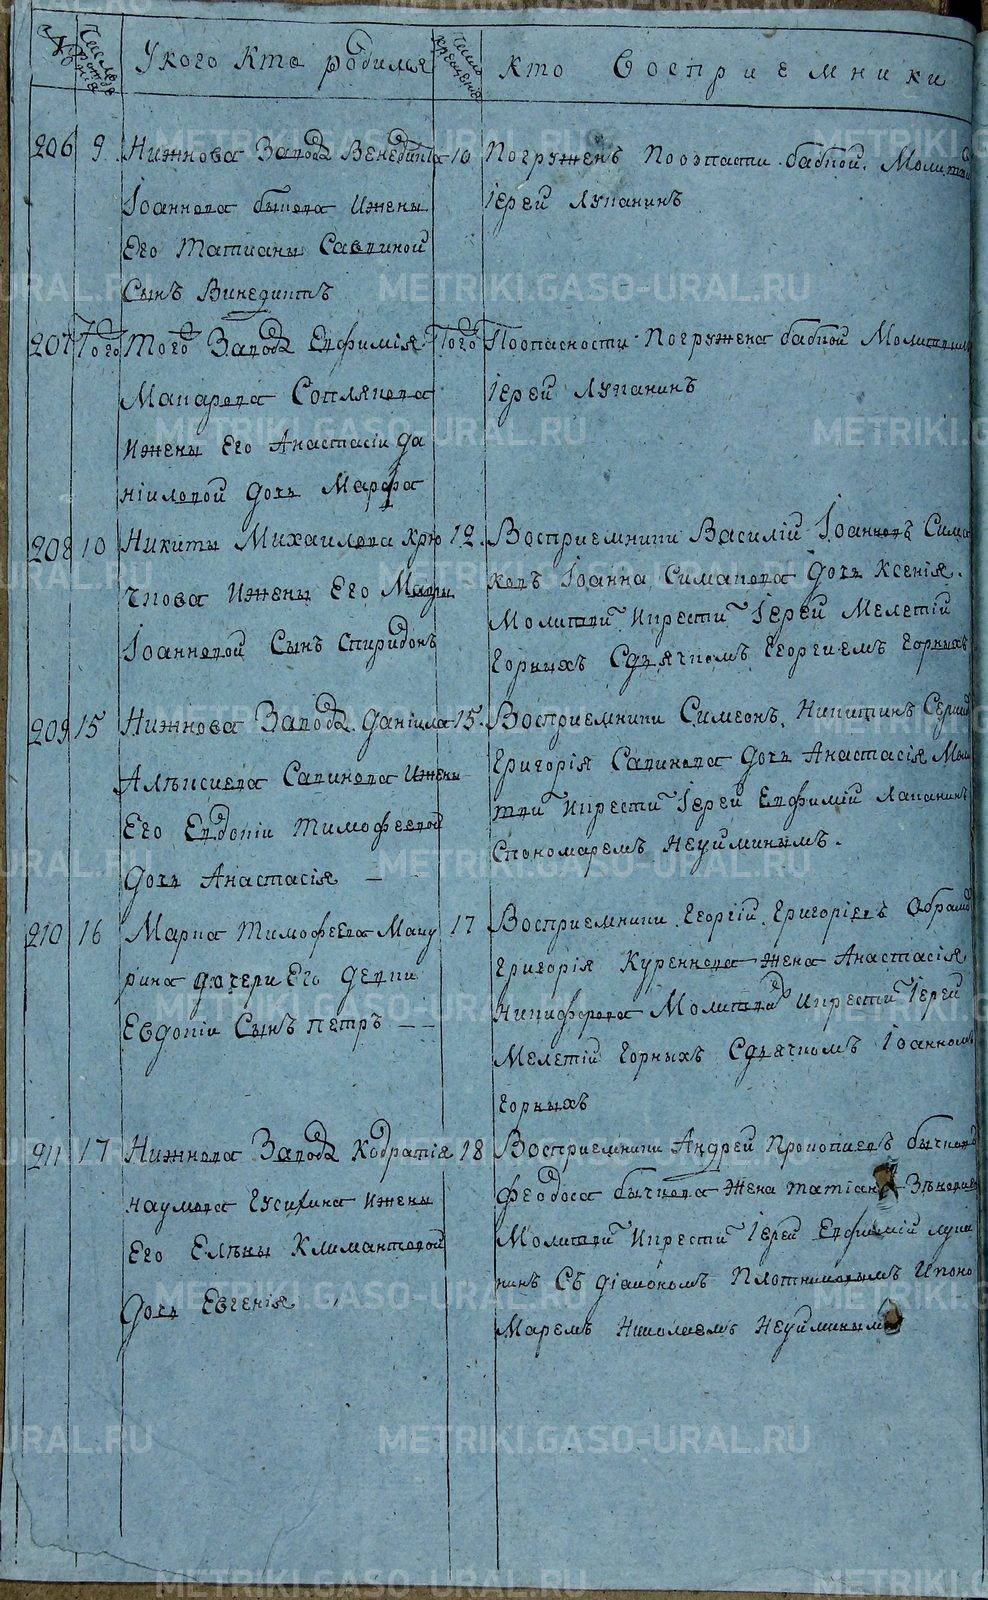 №
Число рожденія
У кого Кто родился
Число крещенія
Кто Восприемники
206 9
Нижнова Завода Венедикта
Іоаннова быкова Ижены
Его Татианы Саввиной
Сынъ Винедиктъ
10
Погруженъ Поопасти бабкой. Молитвилъ
Іерей Лупанинъ
207 Того
Того Завода Евфимія
Макарова Соплякова
Ижены Его Анастасіи да
ніиловой дочь Марфа
Того
Поопасности Погружена бабкой Молитвилъ
Іерей Лупанинъ
208 10
Никиты Михаилова Крю
чкова Ижены Его Мавры
Іоанновой Сынъ Спиридонъ
12.
Восприемники Василій Іоанновъ Сима
ковъ Іоанна Симакова дочь Ксенія.
Молитвилъ Икрестилъ Іерей Мелетій
Горныхъ Сдьячкомъ Георгиемъ Горныхъ
209 15
Нижнова Завода Даніила
Алѣксиева Савинова Ижены
Его Евдокіи Тимофеевой
дочь Анастасія
15.
Восприемники Симеонъ Никитинъ
Григорія Савинова дочь Анастасія Моли
твилъ Икрестилъ Іерей Евфимій Лапанинъ
Спономаремъ Неуйминымъ.
210 16
Марка Тимофеева Мачу
рина дочери Его девки
Евдокіи Сынъ Петръ
17
Восприемники Георгій Григоріевъ
Григорія Куреннова Жена Анастасія
Никифорова Молитвилъ Икрестилъ Іерей
Мелетій Горныхъ Сдьячкомъ Іоанномъ
Горныхъ
211 17
Нижнова Завода Кодратія
Наумова Гусихина Ижены
Его Елѣны Климантовой
дочь Евгенія
18
Восприемники Андрей Прокопиевъ бычковъ
Феодоса бычкова Жена Татіана
Молитвилъ Икрестилъ Іерей Евфимій Лупа
нинъ Съ діакономъ Плотниковымъ Ипоно
Маремъ Николаемъ Неуйминымъ
METRIKI.GASO-URAL.RU